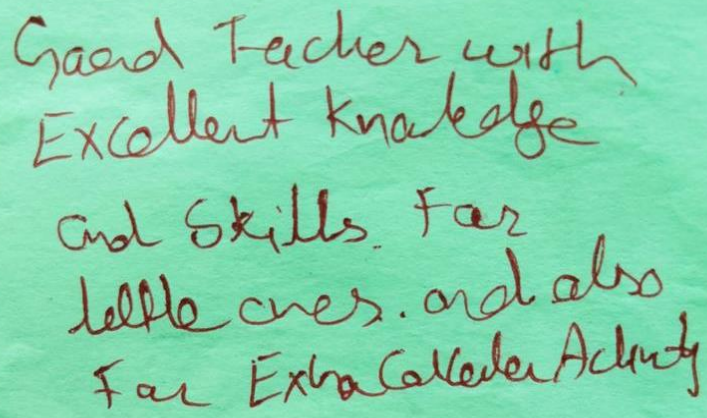 Good Teacher with
Excellent Knowledge
and Skills. For
little ones. and also
For Extra Activity